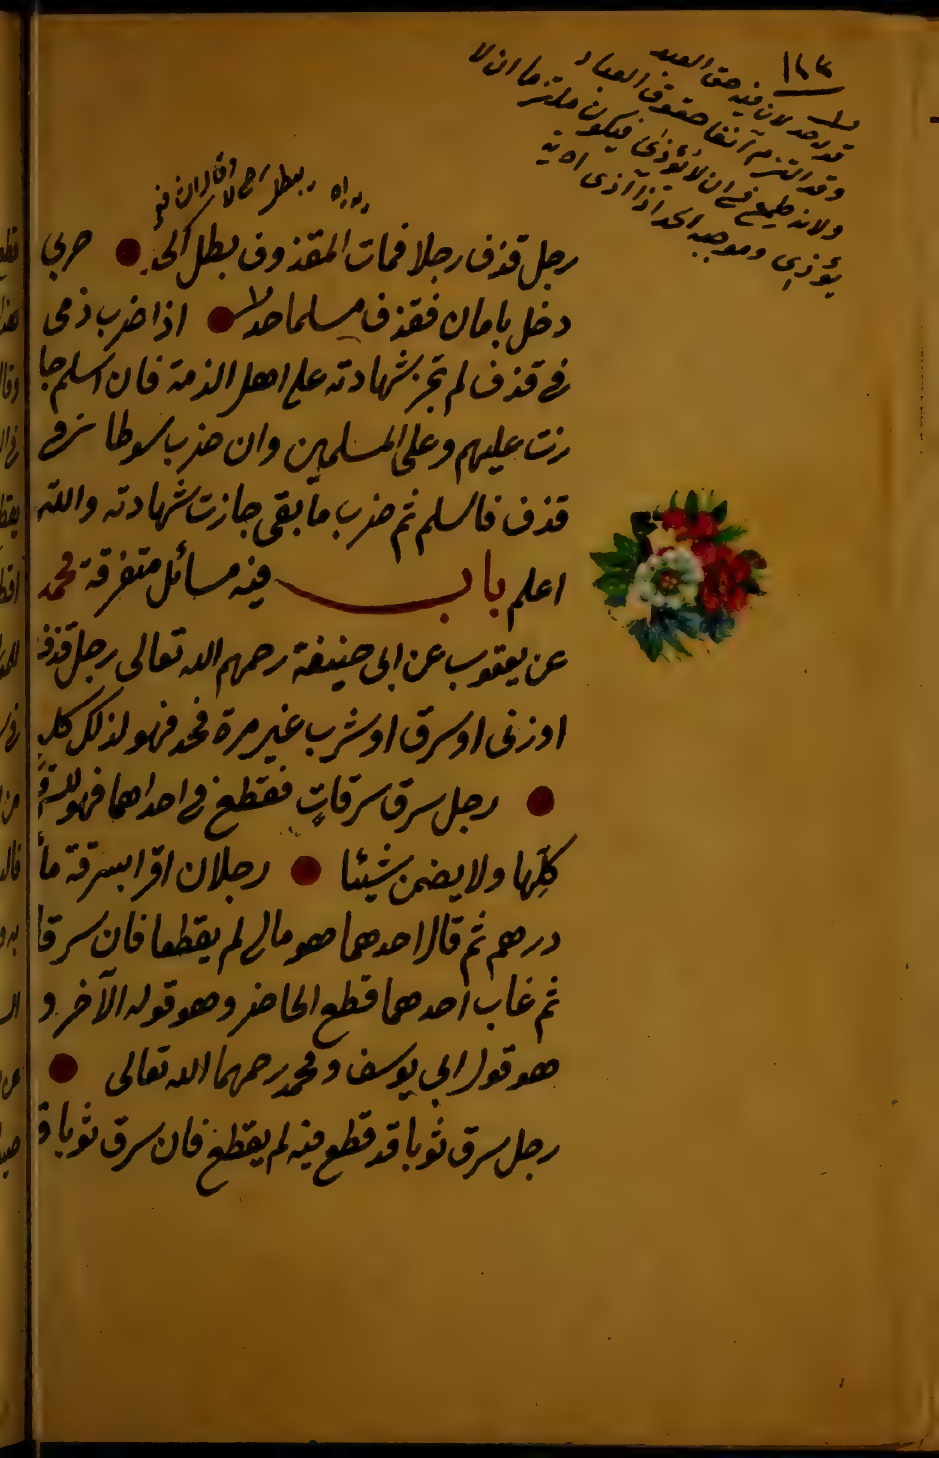 ١٨٣
قد حد لان فيه حق العبد
وقد التزم آنفا حقوق العباد
ولانه طمع في ان لا يؤذى فيكون ملتزما ان لا
يؤذي وموجبه الحد اذا آذى
رجل قذف رجلا فمات المقذوف بطل الحد حربي
دخل بامان فقذف مسلما حد اذا ضرب ذمى
في قذف لم تجز شهادته على اهل الذمة فان اسلم جا
زت عليهم وعلى المسلمين وان ضرب سوطا في
قذف فاسلم ثم ضرب ما بقى جازت شهادته والله
اعلم باب فيه مسائل متفرقة محمد
عن يعقوب عن ابى حنيفة رحمهم الله تعالى رجل قذف
او زنى او سرق او شرب غير مرة فحد فهو لذلك كله
رجل سرق سرقات فقطع في احداها فهو
كلها ولا يضمن شيئا رجلان اقرا بسرقة مأ
درهم ثم قال احدهما هو مالي لم يقطعا فان سرقا
ثم غاب احدهما قطع الحاضر وهو قوله الآخر و
هو قول ابي يوسف ومحمد رحمهما الله تعالى
رجل سرق ثوبا قد قطع فيه لم يقطع فان سرق ثوبا ق